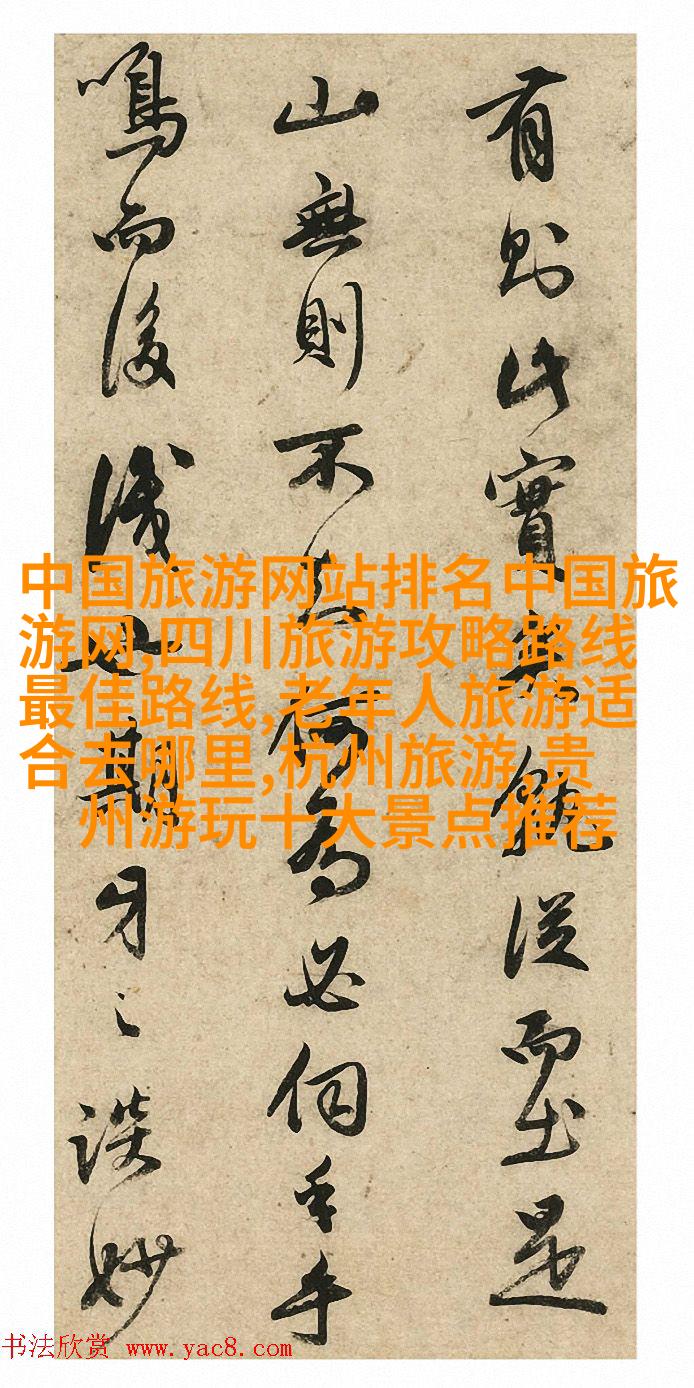 有則此實從而出是
山無則不何為必手
鳴而後識期牙之談妙
中国旅游网站排名中国旅
游网,四川旅游攻略路线
最佳路线,老年人旅游适
合去哪里,杭州旅游,贵
州游玩十大景点推荐
书法欣赏 www.yac8.com